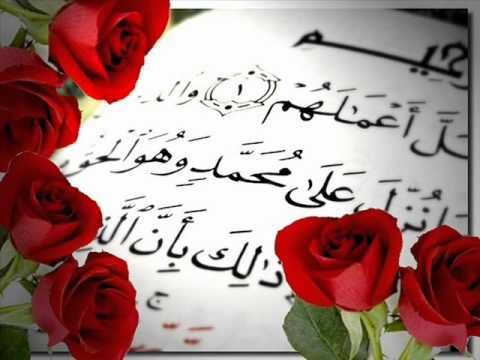 حيم
ضَلَّ أَعْمَٰلَهُمْ ١
نُزِّلَ عَلَىٰ مُحَمَّدٍ وَهُوَ ٱلْحَقُّ
ذَٰلِكَ بِأَنَّ
ج